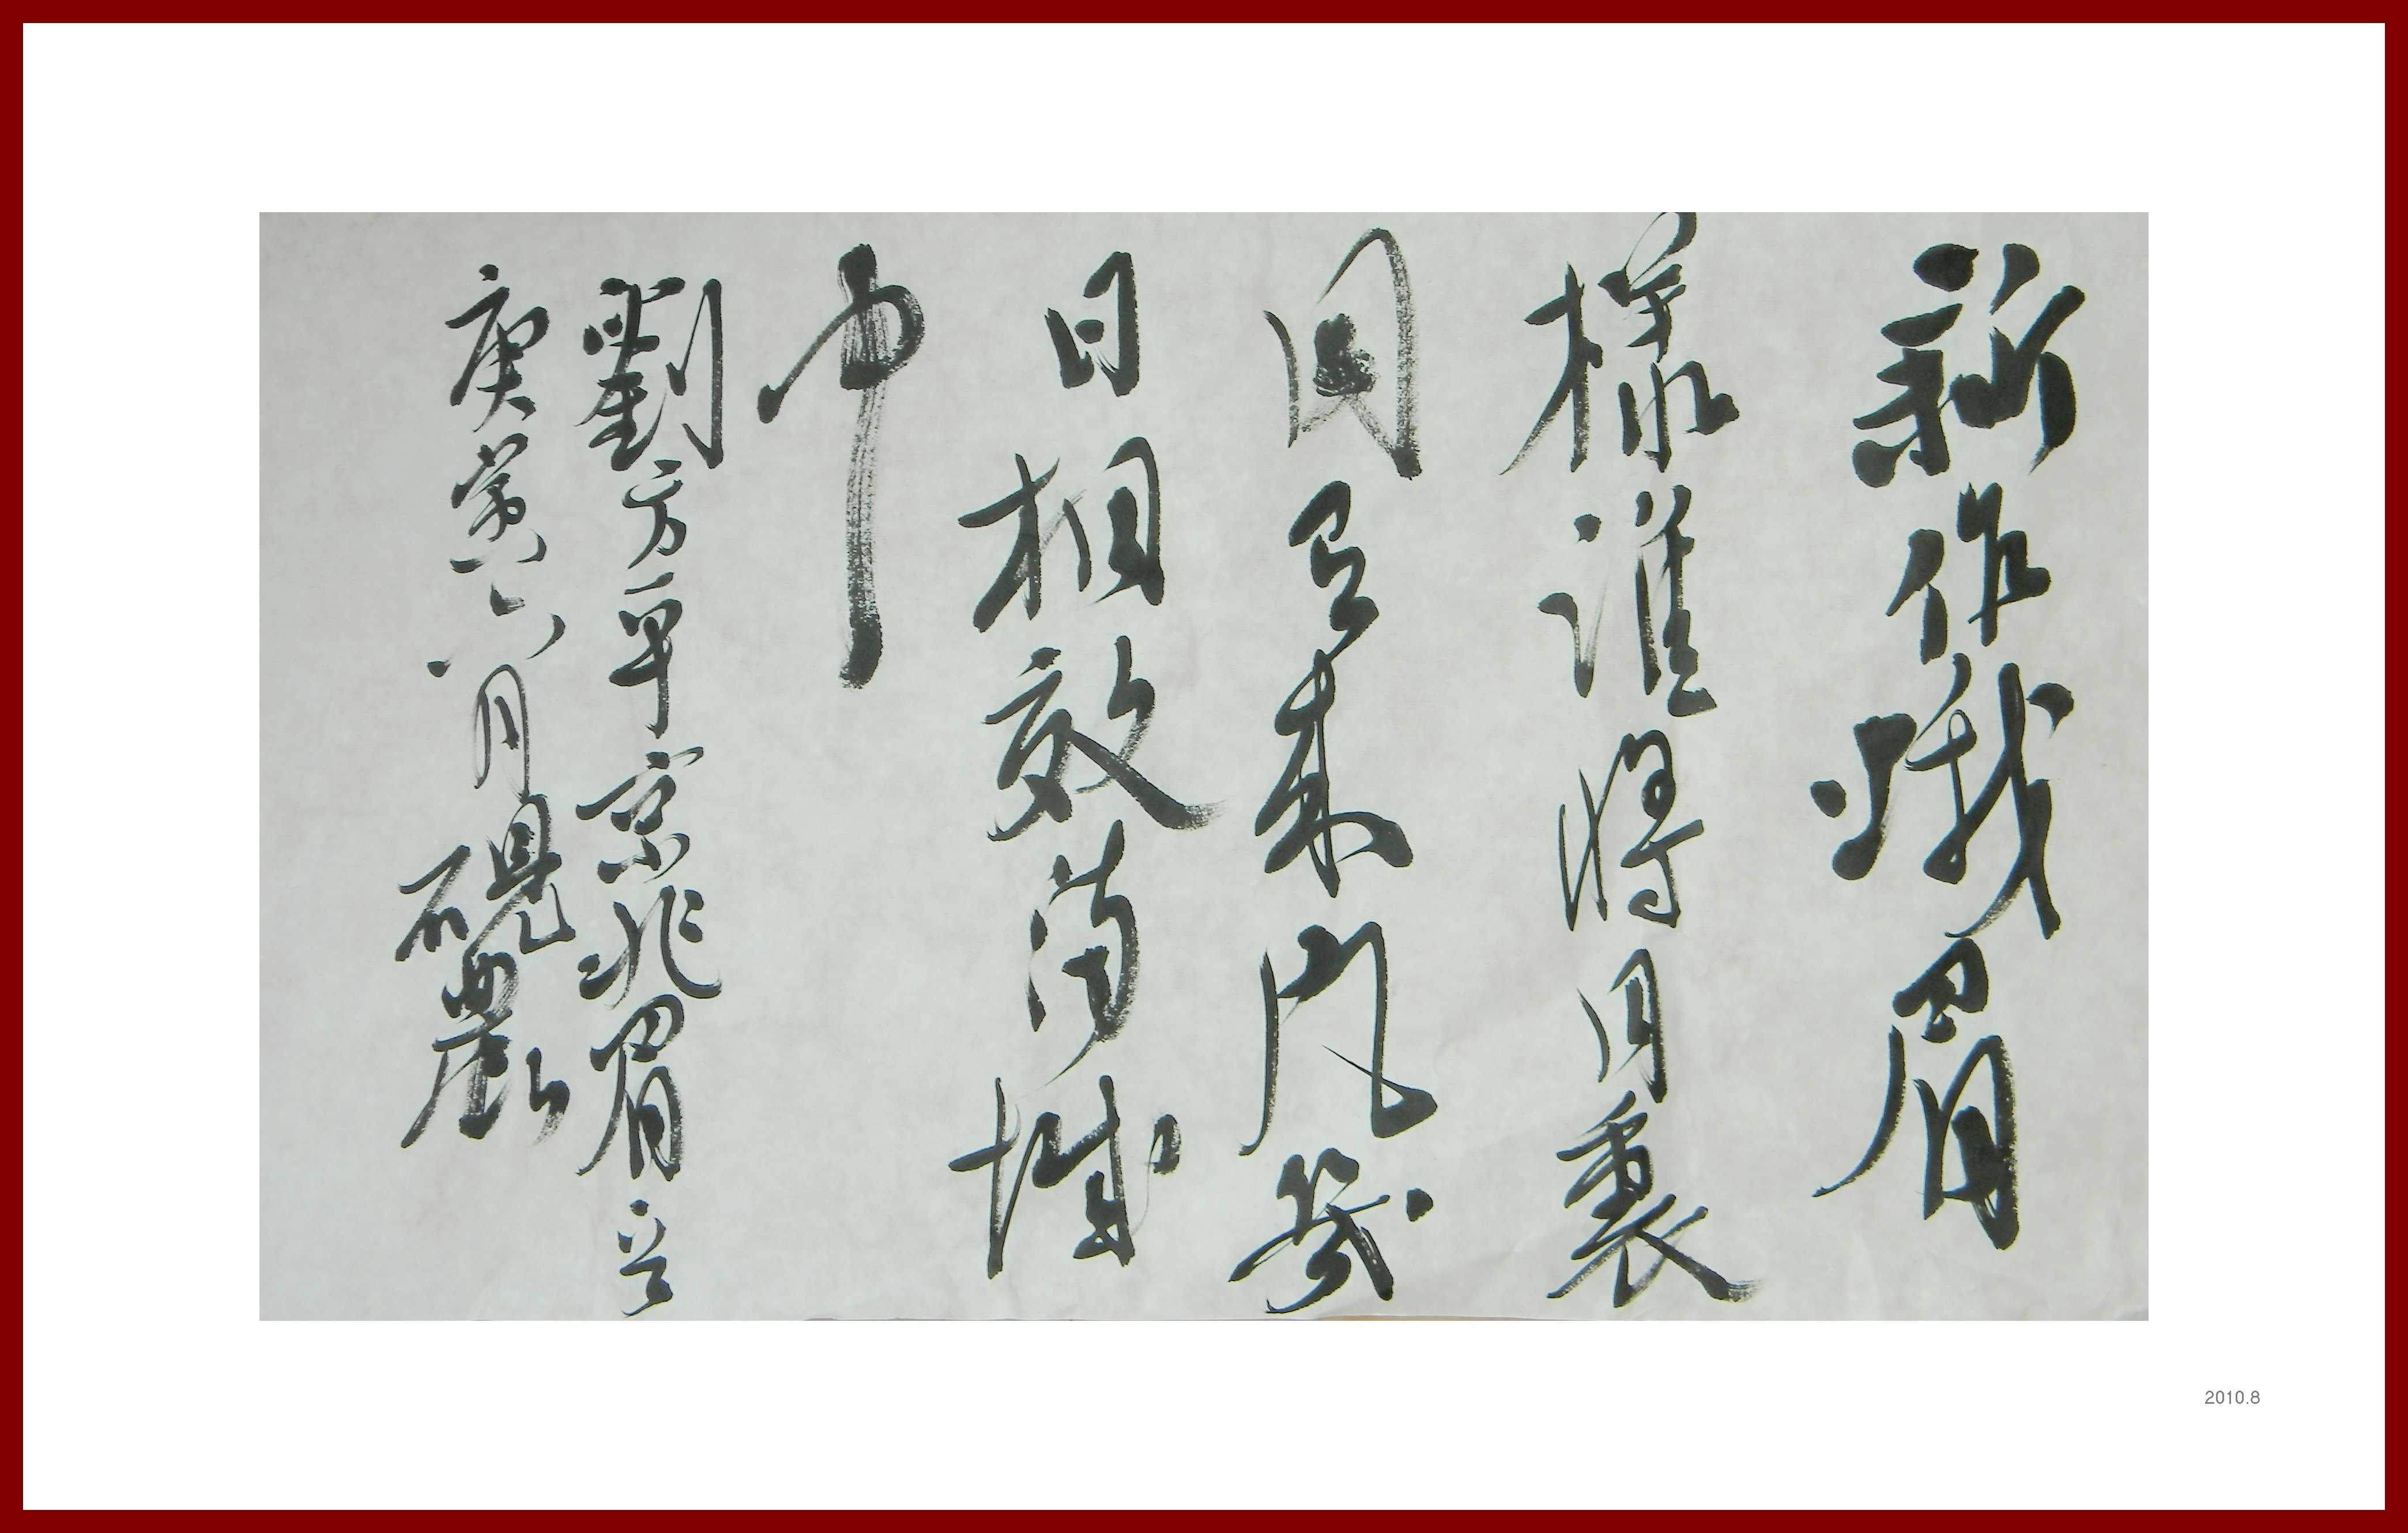 新作蛾眉
樣誰將月裏
同有來凡幾
日相效滿城
中
劉方平京兆眉
庚寅六月硯農
2010.8